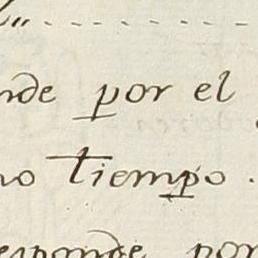 nde por el
no tiempo.
esponde por